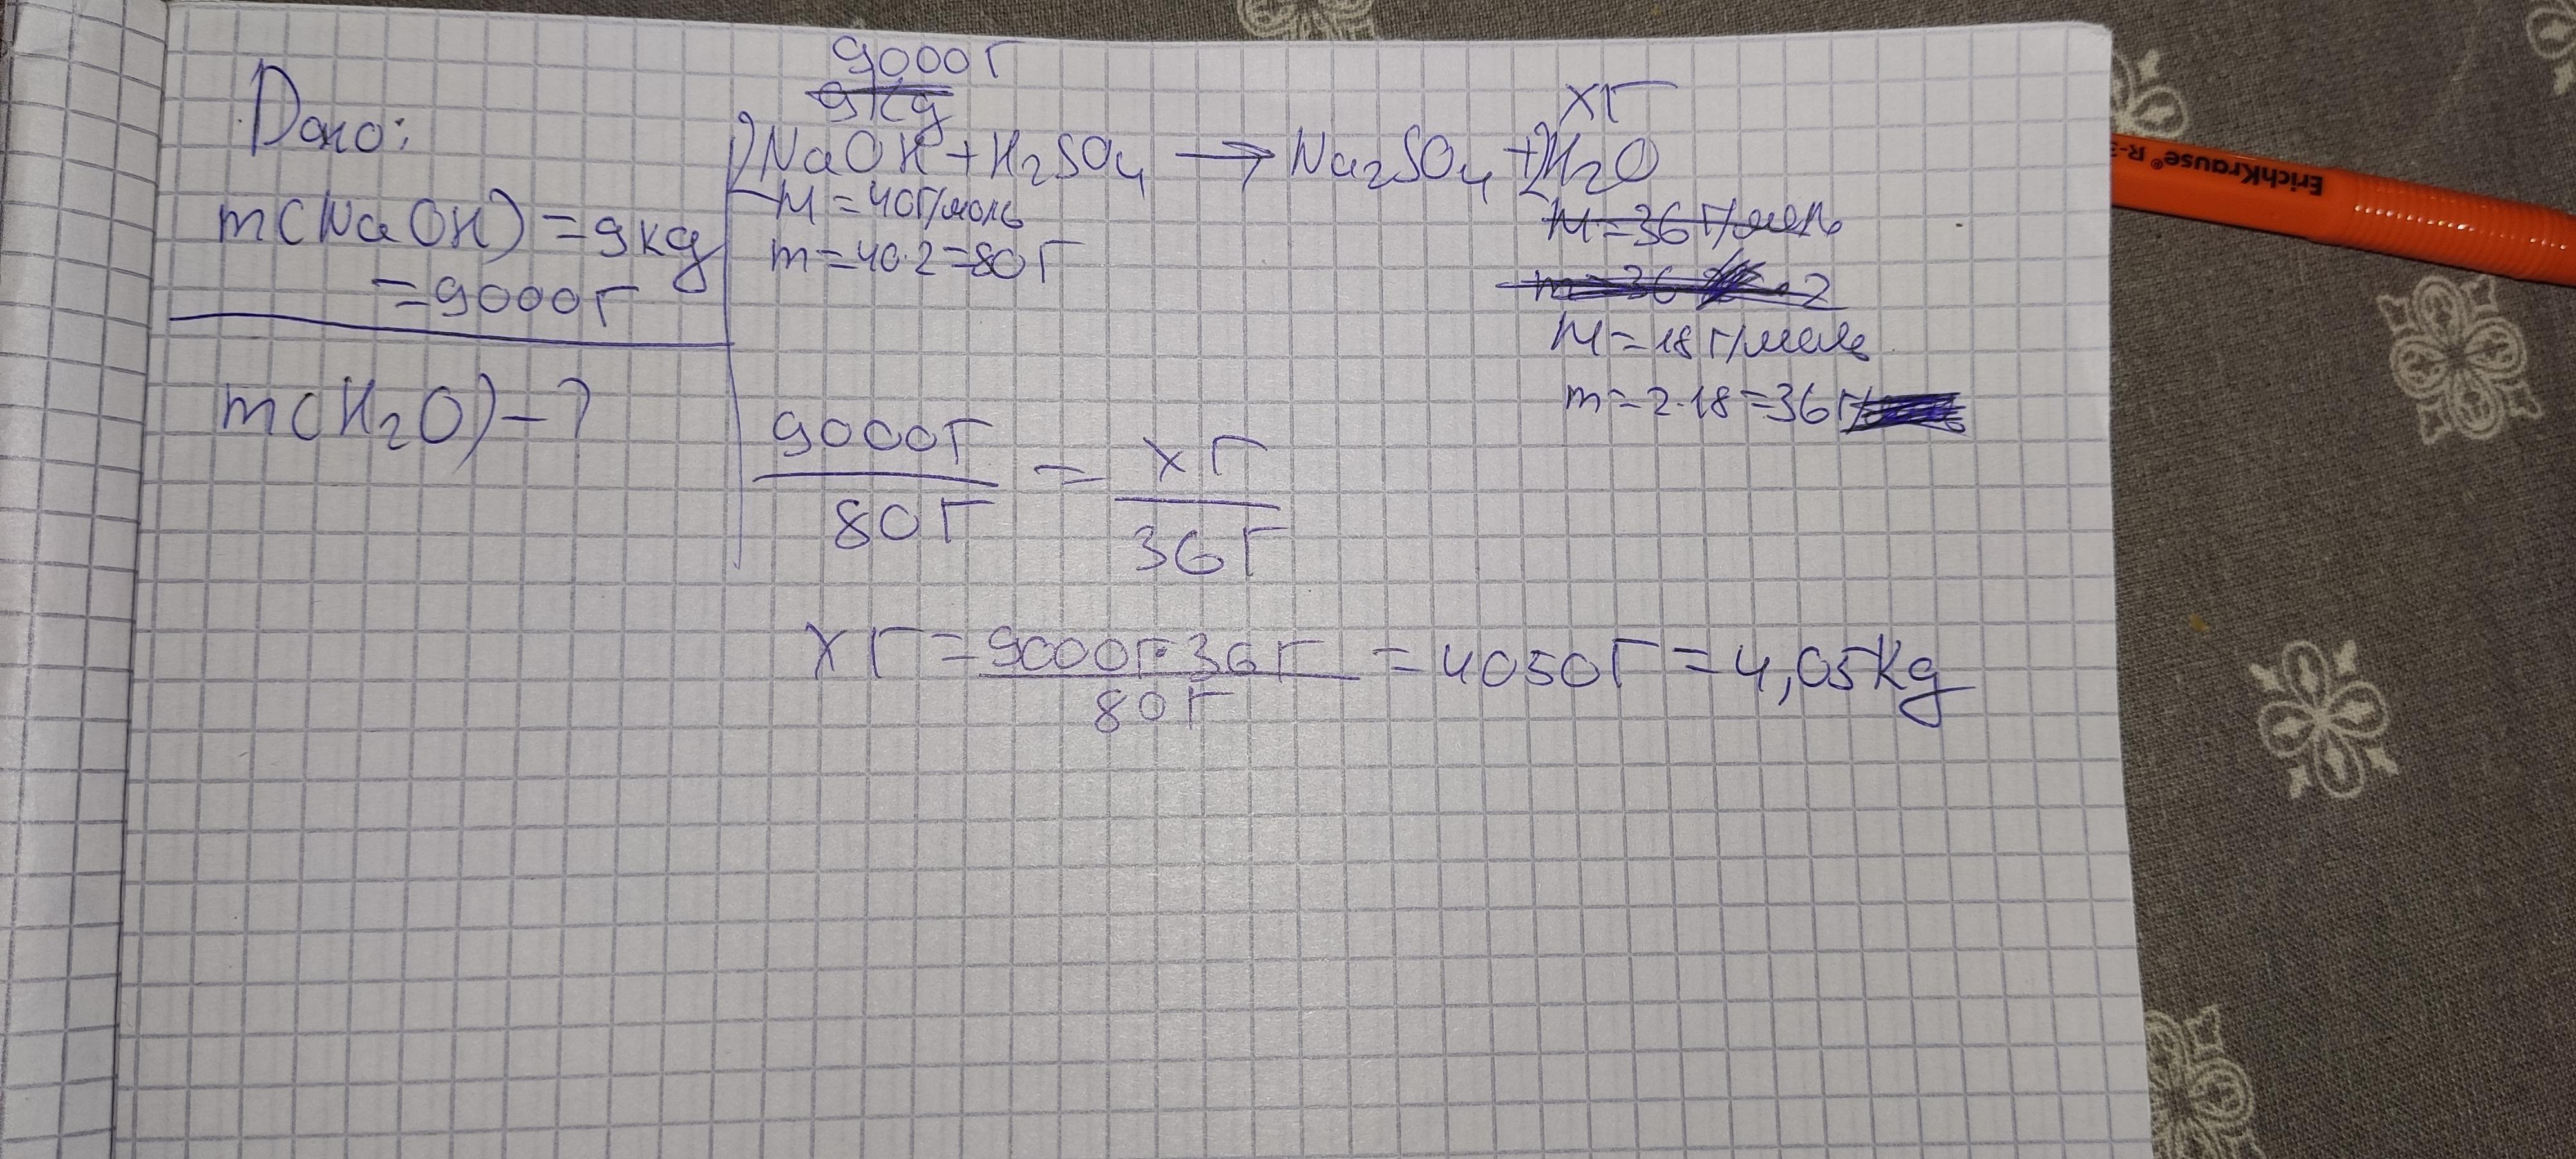 Дано:
m(NaOH)=9kg
=9000г
m(H₂O)-?
9000г
9kg
xг
2NaOH+H₂SO₄ → Na₂SO₄+2H₂O
M=40г/моль
m=40·2=80г
M=36г/моль
m=36 ·2
M=18г/моль
m=2·18=36г/
9000г/80г = xг/36г
xг=9000г·36г/80г=4050г=4,05kg
ErichKrause® R-3